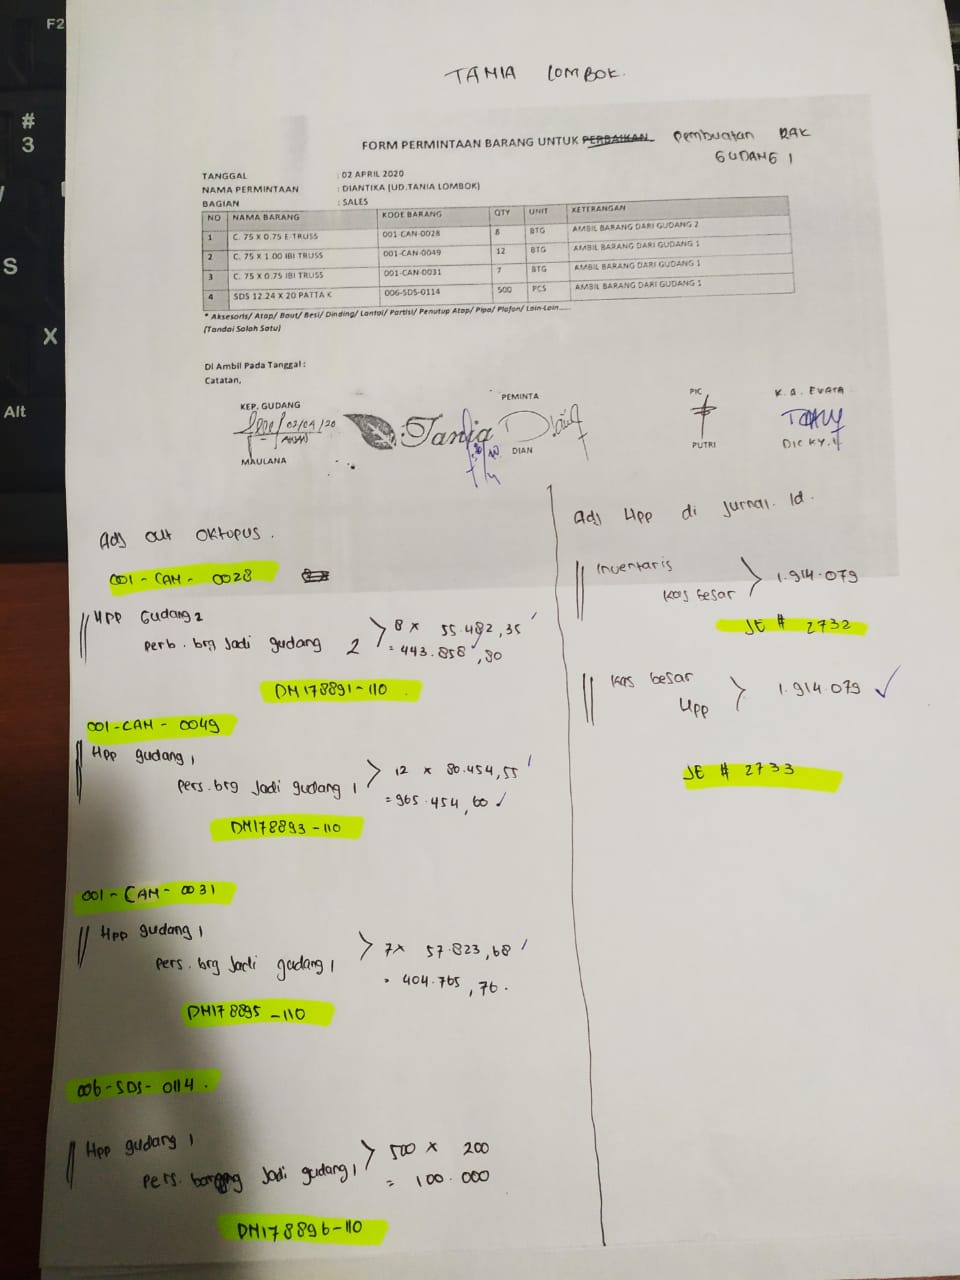 F2
#
3
S
X
Alt
TANIA LOMBOK.
FORM PERMINTAAN BARANG UNTUK PERBAIKAN Pembuatan RAK
GUDANG 1
TANGGAL : 02 APRIL 2020
NAMA PERMINTAAN : DIANTIKA (UD.TANIA LOMBOK)
BAGIAN : SALES
NO NAMA BARANG KODE BARANG QTY UNIT KETERANGAN
1 C. 75 X 0.75 E-TRUSS 001-CAN-0028 8 BTG AMBIL BARANG DARI GUDANG 2
2 C. 75 X 1.00 IBI TRUSS 001-CAN-0049 12 BTG AMBIL BARANG DARI GUDANG 1
3 C. 75 X 0.75 IBI TRUSS 001-CAN-0031 7 BTG AMBIL BARANG DARI GUDANG 1
4 SDS 12.24 X 20 PATTA K 006-SDS-0114 500 PCS AMBIL BARANG DARI GUDANG 1
* Aksesoris/ Atap/ Baut/ Besi/ Dinding/ Lantai/ Partisi/ Penutup Atap/ Pipa/ Plafon/ Lain-Lain.....
(Tandai Salah Satu)
Di Ambil Pada Tanggal :
Catatan,
KEP. GUDANG PEMINTA PIC K.A. EVATA
02/04/20
Tania
MAULANA DIAN PUTRI DICKY.
Adj out OKTOPUS.
001 - CAN - 0028
HPP Gudang 2
perb. brg Jadi gudang 2 8 x 55.482,35
= 443.858,80
DM178891-110
001-CAN - 0049
Hpp gudang 1
pers. brg Jadi gudang 1 12 x 80.454,55
= 965.454,60 ✓
DM178893-110
001 - CAN - 0031
Hpp gudang 1
pers. brg Jadi gudang 1 7x 57.823,68
= 404.765,76.
DM178895-110
006-SDS-0114.
Hpp gudang 1
pers. barang Jadi gudang 1 500 x 200
= 100.000
DM178896-110
Adj Hpp di Jurnal. Id.
Inventaris
kas besar 1.914.079
JE # 2732
Kas besar
Hpp 1.914.079 ✓
JE # 2733